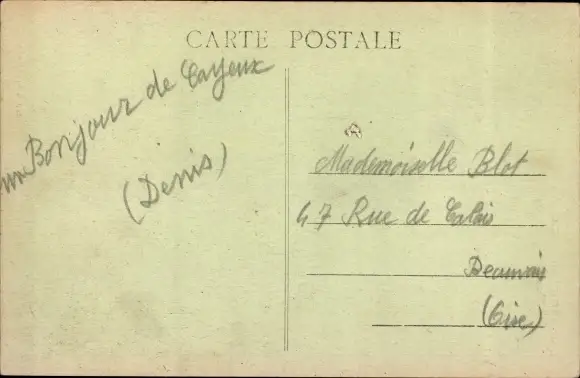 CARTE POSTALE
un Bonjour de Cayeux
(Denis)
Mademoiselle Blot
47 Rue de Calais
Beauvais
(Oise)